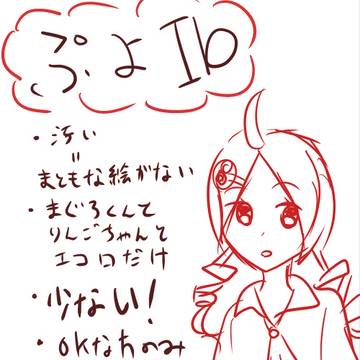 ぷよIb
・汚い
=
まともな絵がない
・まぐろくんと
りんごちゃんと
エコロだけ
・少ない!
・OKな方のみ